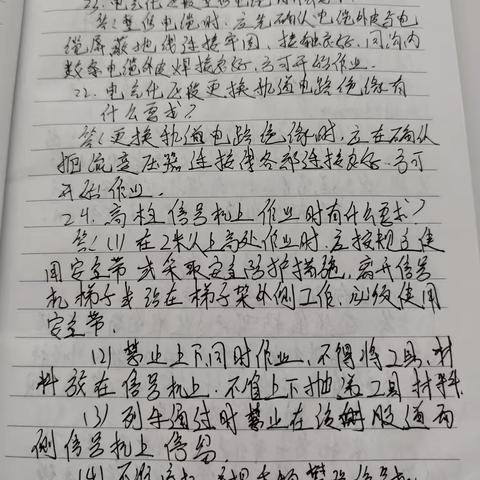 答：整修电缆时，应先确认电缆外皮与电
缆屏蔽地线连接牢固，接触良好，同沟内
数条电缆外皮焊接良好，方可开始作业。
22.电气化区段更换轨道电路绝缘有
什么要求？
答：更换轨道电路绝缘时，应在确认
扼流变压器连接线各部连接良好，方可
开始作业。
24.高柱信号机上作业时有什么要求？
答：(1)在2米以上高处作业时，应按规定使
用安全带或采取安全防护措施，离开信号
机梯子或站在梯子架外侧工作，必须使用
安全带。
(2)禁止上下同时作业，不得将工具、材
料放在信号机上，不准上下抛递工具材料。
(3)列车通过时禁止在该股道两
侧信号机上停留。